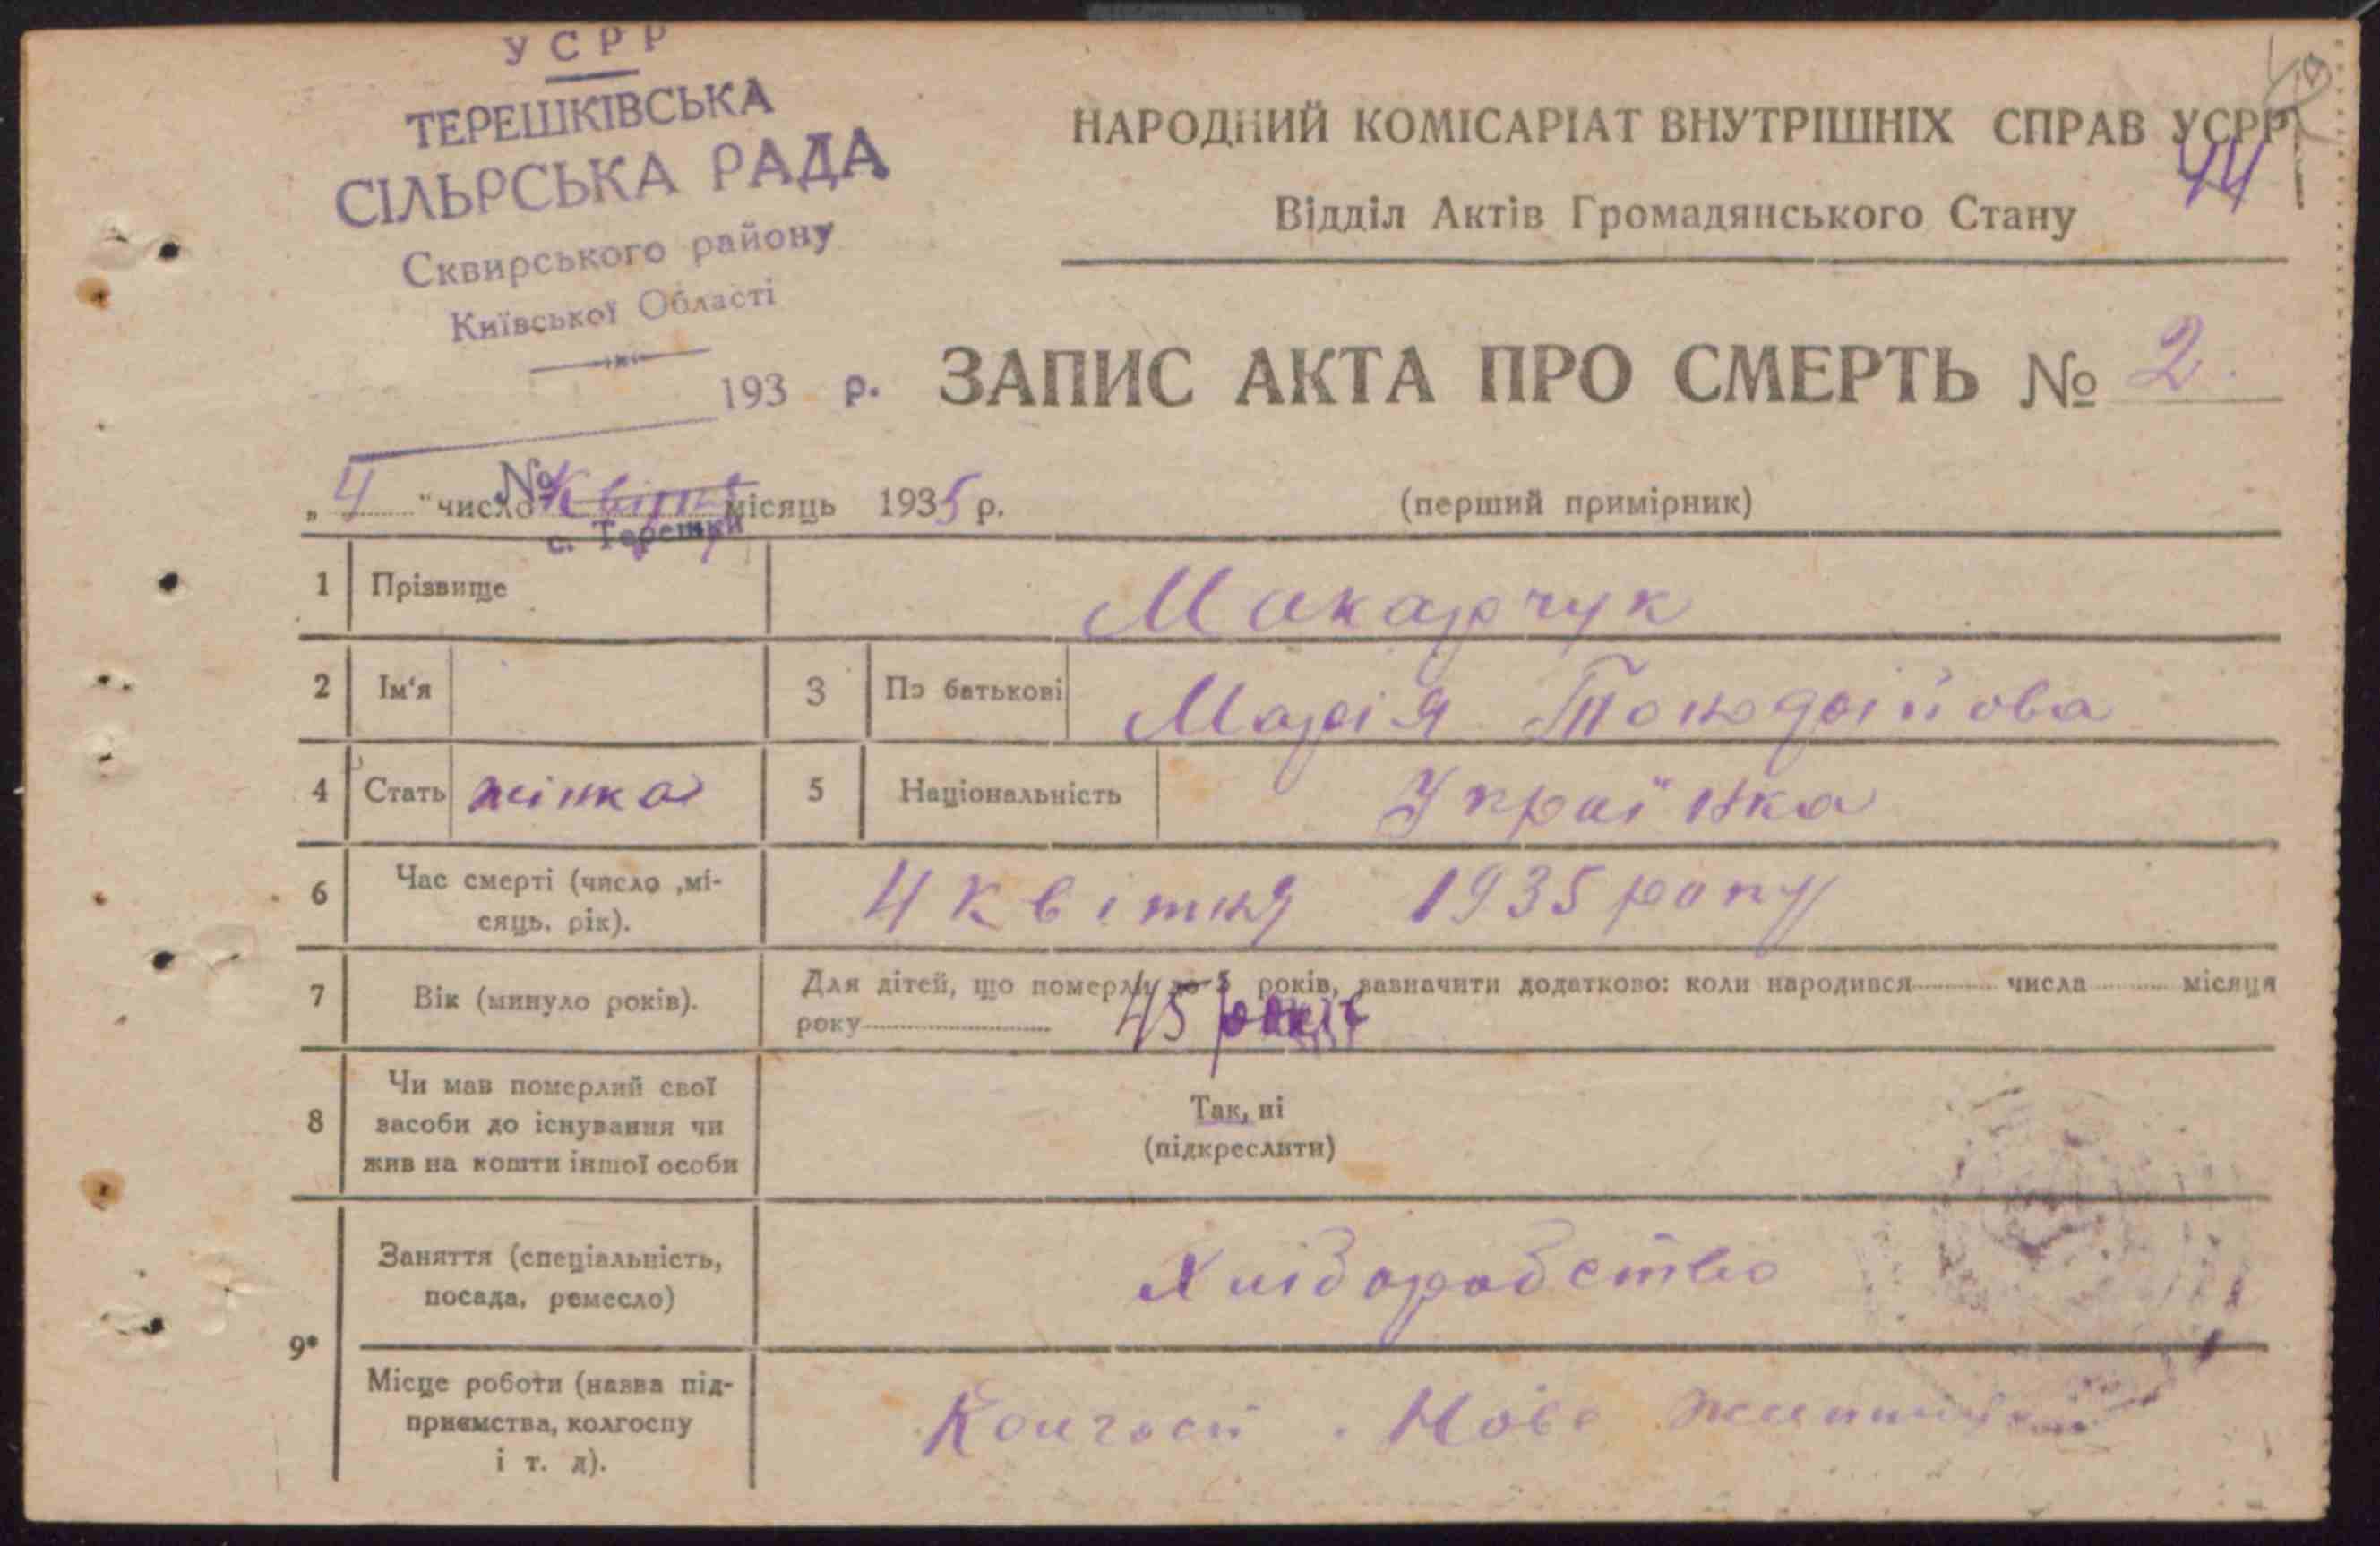 УСРР
ТЕРЕШКІВСЬКА
СІЛЬРСЬКА РАДА
Сквирського району
Київської Області
193 р.
№
с. Терешки
НАРОДНИЙ КОМІСАРІАТ ВНУТРІШНІХ СПРАВ УСРР
44
Відділ Актів Громадянського Стану
ЗАПИС АКТА ПРО СМЕРТЬ № 2.
„ 4 “ число Квітня місяць 1935 р.
(перший примірник)
1 Прізвище Макарчук
2 Ім‘я 3 По батькові Марія
4 Стать жінка 5 Національність Українка
6 Час смерті (число ,мі-
сяць, рік). 4 Квітня 1935 року
7 Вік (минуло років). Для дітей, що померли до 5 років, зазначити додатково: коли народився числа місяця
року 45 років
8 Чи мав померлий свої
засоби до існування чи
жив на кошти іншої особи
Так, ні
(підкреслити)
9*
Заняття (спеціальність,
посада, ремесло) Хліборобство
Місце роботи (назва під-
приємства, колгоспу
і т. д).
Колгосп Нове життя